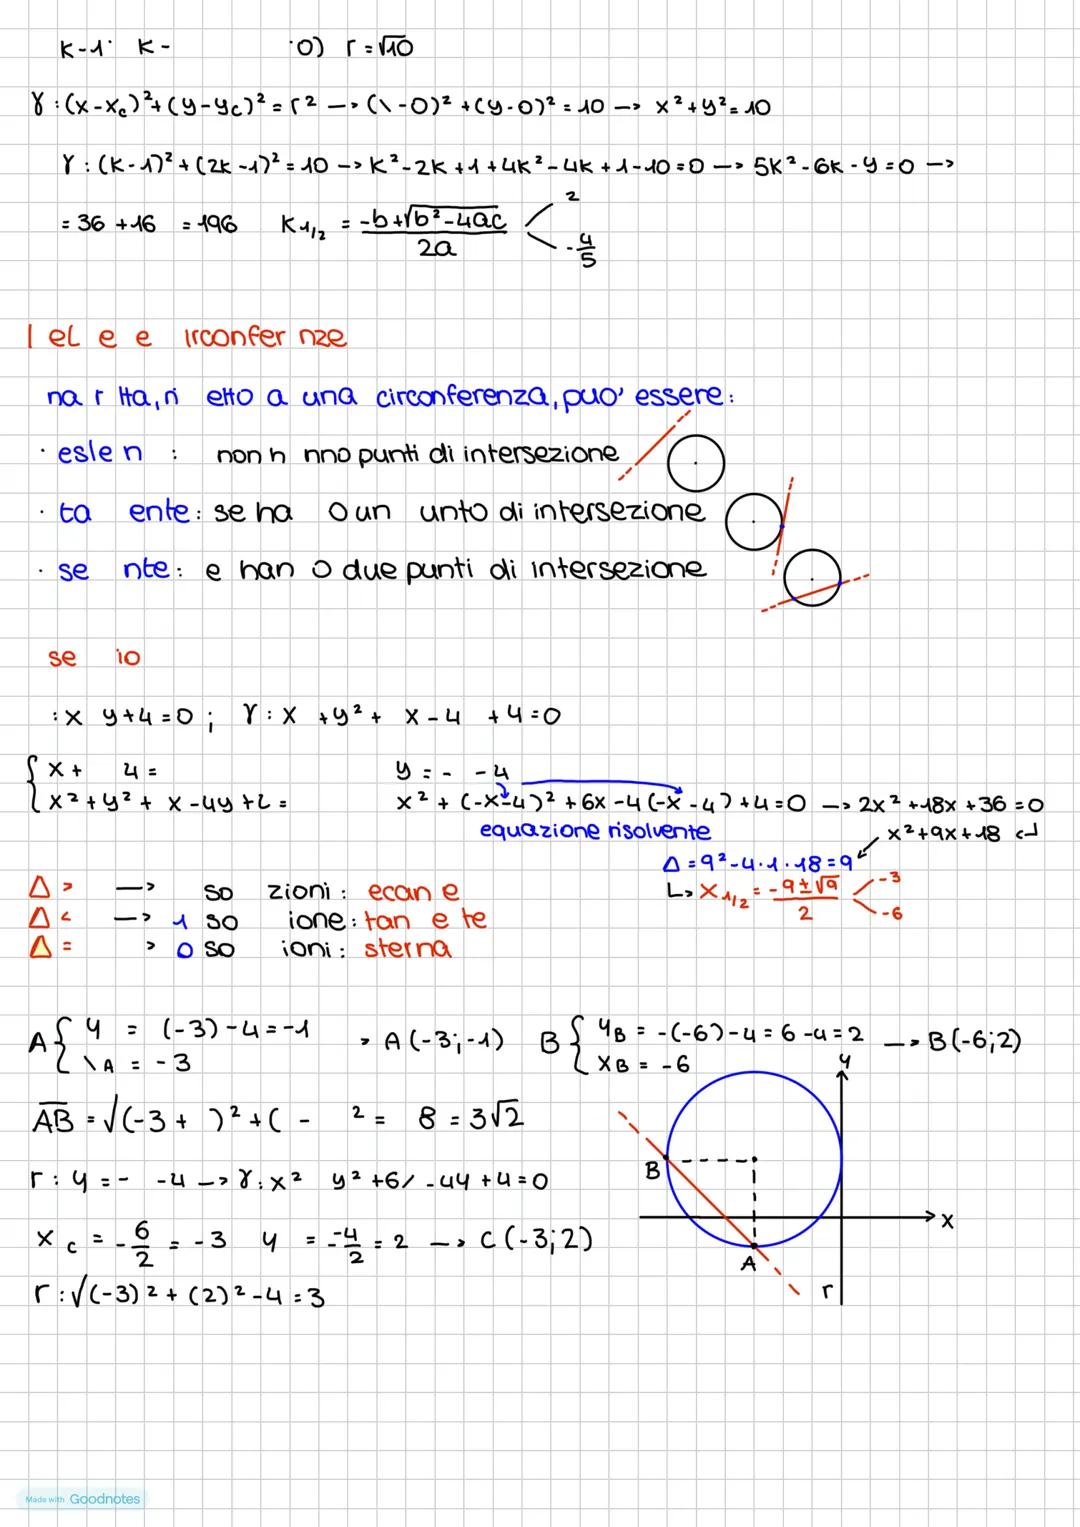 K-1· K- ·0) r=√10
γ:(x-x_c)²+(y-y_c)²=r² -> (\-0)²+(y-0)²=10 -> x²+y²=10
γ:(K-1)²+(2K-1)²=10 -> K²-2K+1+4K²-4K+1-10=0 -> 5K²-6K-y=0 ->
=36+16 =196 K_1/2 = (-b+√b²-4ac)/2a < 2 -4/5
irconfer nze
na r tta, ri etto a una circonferenza, puo' essere:
· este n : non h nno punti di intersezione
· ta ente: se ha o un unto di intersezione
· se nte: e han o due punti di intersezione
se io
:x y+4=0; γ:x +y²+ x-4 +4=0
{ x+ 4= y=- -4
x²+y²+ x-4y+2= x²+(-x-4)²+6x-4(-x-4)+4=0 -> 2x²+18x+36=0
equazione risolvente x²+9x+18
Δ=9²-4·1·18=9
Δ > -> so zioni: ecan e x_1/2 = (-9±√9)/2 < -3 -6
Δ < -> 1 so ione: tan e te
Δ = > 0 so ioni: sterna
A{ y = (-3)-4=-1 > A(-3;-1) B{ y_B = -(-6)-4=6-4=2 -> B(-6;2)
\A = -3 x_B = -6
AB=√(-3+ )²+( - ²= 8=3√2
r:y=- -4 -> γ:x² y²+6/-44+4=0
x_c = -6/2 = -3 y = -(-4)/2 = 2 -> C(-3;2)
r:√(-3)²+(2)²-4=3
y
x
B
A
r
Made with Goodnotes